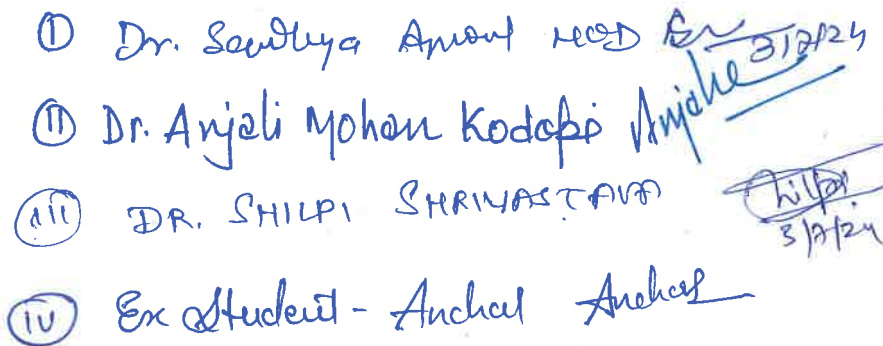 ① Dr. Sandhya Amont HOD 3/7/24
② Dr. Anjali Mohan Kodopi Anjali
(iii) DR. SHILPI SHRIVASTAVA Shilpi 3/7/24
(iv) Ex Student - Anchal Anchal